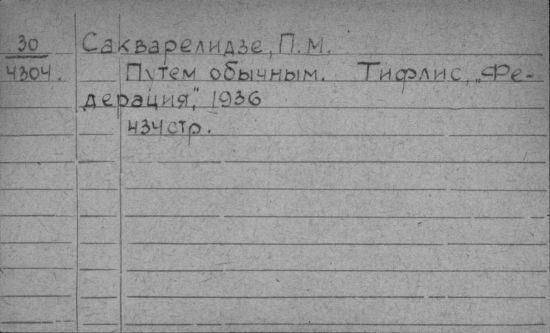 30 Сакварелидзе, П.М.
4304. Путем обычным. Тифлис, „Фе-
дерация," 1936
434 стр.